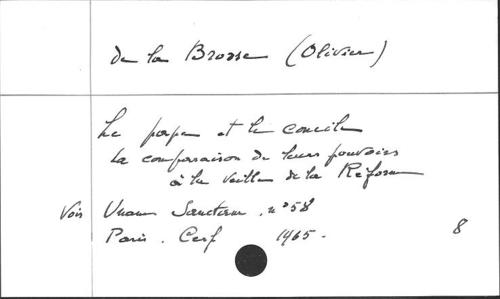 de la Brosse (Olivier)
Le pape et le concile
La comparaison de leurs pouvoirs
à la veille de la Réforme
Vois Unam Sanctam. n° 58
Paris. Cerf 1965.
8